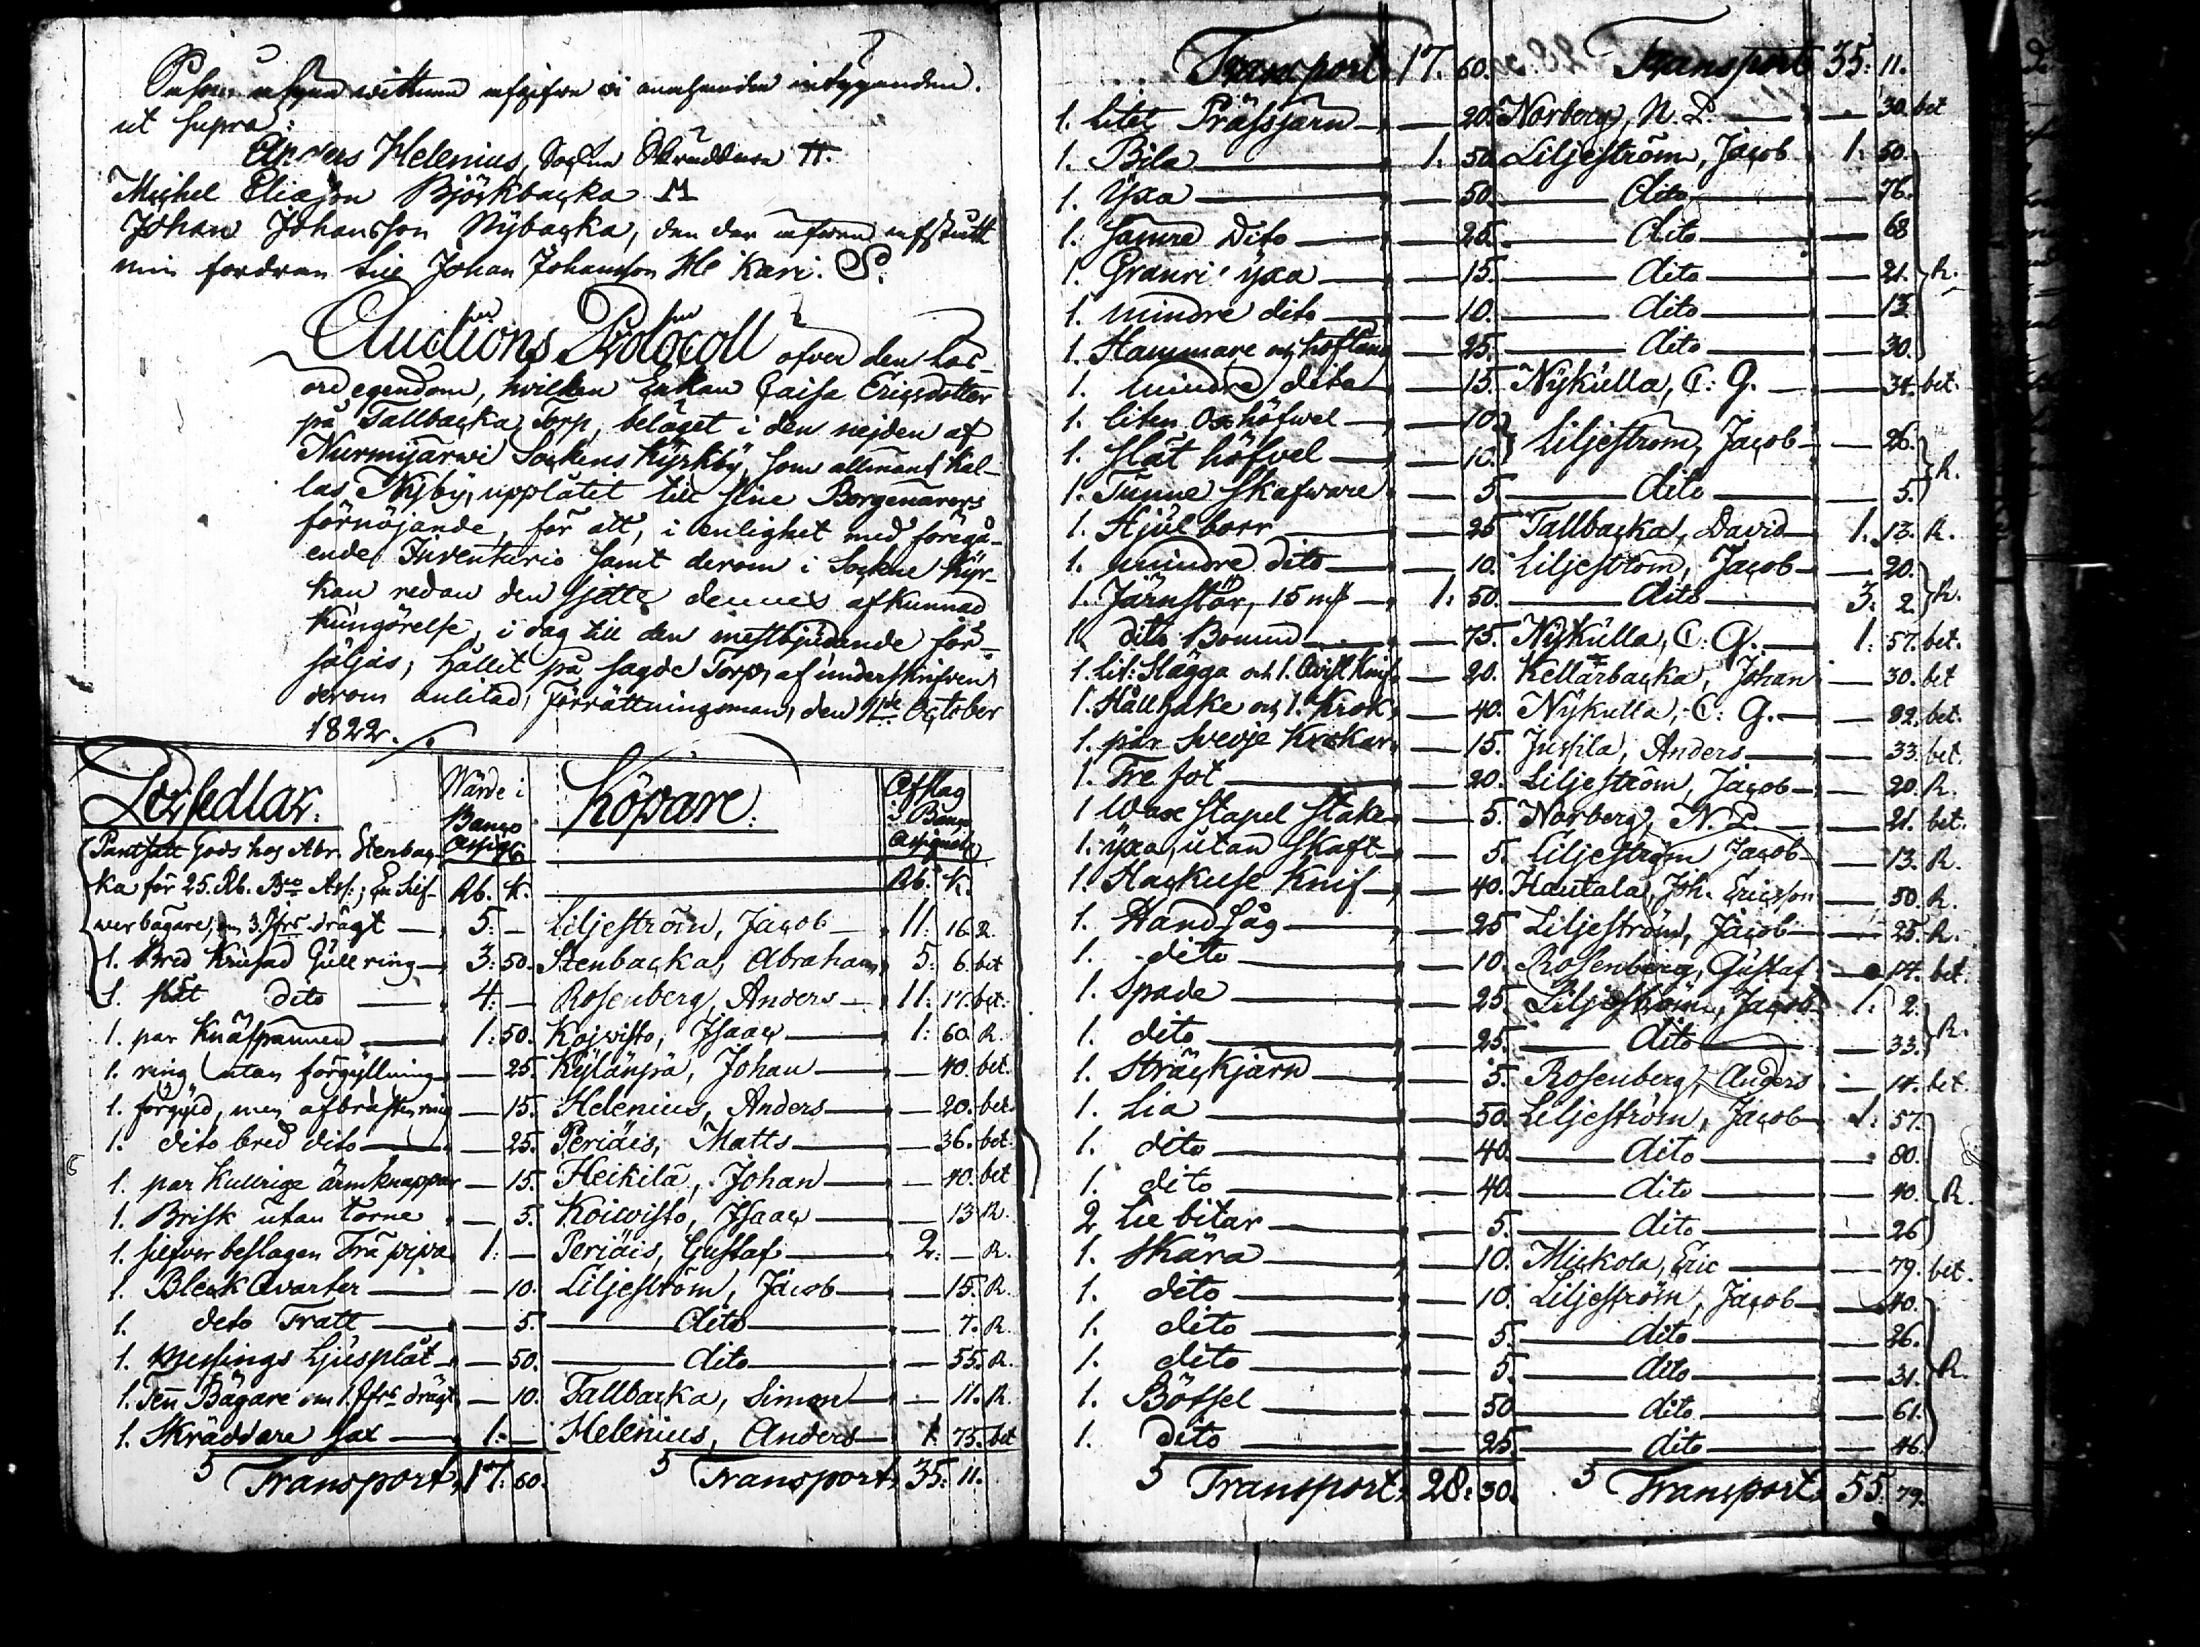 ut supra:
Anders Helenius, Sockne Skräddare
Michel Eliasson Björkbacka
Johan Johansson Nybacka, den der
min fordran till Johan Johansson
Auctions Protocoll öfver den Lös-
öre egendom, hvilken Enkan Caisa Ericsdotter
på Tallbacka Torp, beläget i den nejden af
Nurmijärwi Sockens Kyrkby, som allmänt kal-
las Nyby, upplåtet till sine Borgenärers
förnöjande, för att, i enlighet med föregå-
ende Inventario samt derom i Sockne Kyr-
kan redan den sjette dennes afkunnad
kungörelse, i dag till den mestbjudande för-
säljas; hållit på sagde Torp, af underskrifven
derom anlitad Förrättningsman, den October
1822.
Persedlar. Wärde i Banco Assign. Köpare. Afslag i Banco Assignat.
Pantsatt Gods hos Abr. Stenbac-
ka för 25. Rb. Bco Ass:; en Silf- Rb. K. Rb. K.
werbägare, om 3. Jfrs drägt 5: — Liljeström, Jacob 11: 16. R.
1. Bred Krusad Gullring 3: 50. Stenbacka, Abraham 5: 6. bet
1. slät dito 4: — Rosenberg, Anders 11: 17. bet.
1. par Knäspännen 1: 50. Koiwisto, Isaac 1: 60. R.
1. ring utan förgyllning — 25. Kylänpä, Johan — 40. bet.
1. förgyld, men afbruten ring — 15. Helenius, Anders — 20. bet.
1. dito bred dito — 25. Periäis, Matts — 36. bet.
1. par Kullrige ärmknappar — 15. Heikilä, Johan — 40. bet
1. Brisk utan torne — 5. Koiwisto, Isaac — 13. R.
1. silfver beslagen Trä pipa 1: — Periäis, Gustaf 2: — R.
1. Bleck Qvarter — 10. Liljeström, Jacob — 15. R.
1. dito Tratt — 5. dito — 7. R.
1. Messings Ljusplåt — 50. dito — 55. R.
1. Tenn Bägare om 1. Jfrs drägt — 10. Tallbacka, Simon — 11. R.
1. Skräddare sax 1: — Helenius, Anders 1: 75. bet
Transport 17: 60. Transport 35: 11.
Transport 17. 60. Transport 35: 11.
1. litet Prässjärn — 20. Norberg, N. P. — 30. bet
1. Bila 1: 50. Liljeström, Jacob 1: 50.
1. Yxa — 50. dito — 76.
1. Sämre Dito — 25. dito — 68
1. Granri' yxa — 15. dito — 21. R.
1. mindre dito — 10. dito — 13.
1. Hammare och hoftång — 25. dito — 30.
1. mindre dito — 15. Nykulla, C: G. — 34. bet.
1. liten Ox höfwel — 10.
1. slät höfvel — 10. Liljeström, Jacob — 26.
1. Tunne skafware — 5. dito — 5. R.
1. Hjul borr — 25 Tallbacka, David 1. 13. R.
1. mindre dito — 10. Liljeström, Jacob — 20.
1. Järnstör, 15 1: 50. dito 3: 2. R.
1. dito — 75. Nykulla, C: G. 1: 57. bet.
1. lit: Slägga och 1. Knif — 20. Kellarbacka, Johan — 30. bet
1. Hållhake och 1. Krok — 40. Nykulla, C: G. — 82. bet.
1. par Krokar — 15. Jussila, Anders — 33. bet.
1. Tre fot — 20. Liljeström, Jacob — 20. R.
1 Wax Stapel Stake — 5. Norberg, N. P. — 21. bet.
1. yxa, utan skaft — 5. Liljeström Jacob — 13. R.
1. Hackuse Knif — 40. Hautala, Joh. Ericsson — 50 R.
1. Hand såg — 25 Liljeström, Jacob — 25. R.
1. dito — 10. Rosenberg, Gustaf — 14. bet.
1. Spade — 25 Liljeström, Jacob 1: 2.
1. dito — 25. dito — 33. R.
1. Sträckjärn — 5. Rosenberg, Anders — 14. bet.
1. Lia — 50. Liljeström, Jacob 1: 57.
1. dito — 40. dito — 80.
1. dito — 40. dito — 40. R.
2 Lie bitar — 5. dito — 26
1. Skära — 10. Mickola, Eric — 79. bet.
1. dito — 10. Liljeström, Jacob — 40.
1. dito — 5. dito — 26.
1. dito — 5. dito — 31. R.
1. Bössel — 50 dito — 61.
1. dito — 25. dito — 46.
Transport 28: 30. Transport 55: 79.